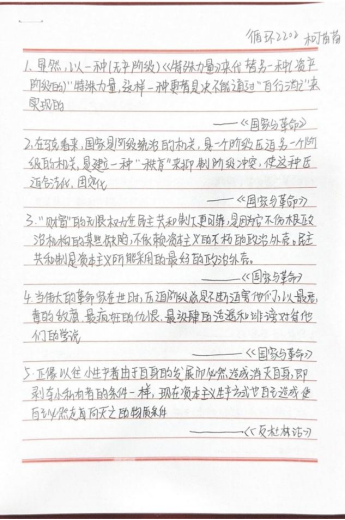 循环2202 柯
1、显然,以一种(无产阶级)《特殊力量》来代替另一种(资产
阶级的)"特殊力量,这样一种更替是决不能通过"自行消亡"来
实现的
——《国家与革命》
2.在马克思看来,国家是阶级统治的机关,是一个阶级压迫另一个阶
级的机关,是建立一种"秩序"来抑制阶级冲突,使这种压
迫合法化、固定化
——《国家与革命》
3."财富"的无限权力在民主共和制下更可靠,是因为它不依赖政
治机构的某些缺陷,不依赖资本主义的不好的政治外壳。民主
共和制是资本主义所能采用的最好的政治外壳。
——《国家与革命》
4.当伟大的革命家在世时,压迫阶级总是不断迫害他们,以最恶
毒的敌意、最疯狂的仇恨、最放肆的造谣和诽谤对待他
们的学说
——《国家与革命》
5.正像以往小生产者由于自身的发展而必然造成消灭自身,即
剥夺小私有者的条件一样,现在资本主义生产方式也自己造成使
自己必然走向灭亡的物质条件
——《反杜林论》